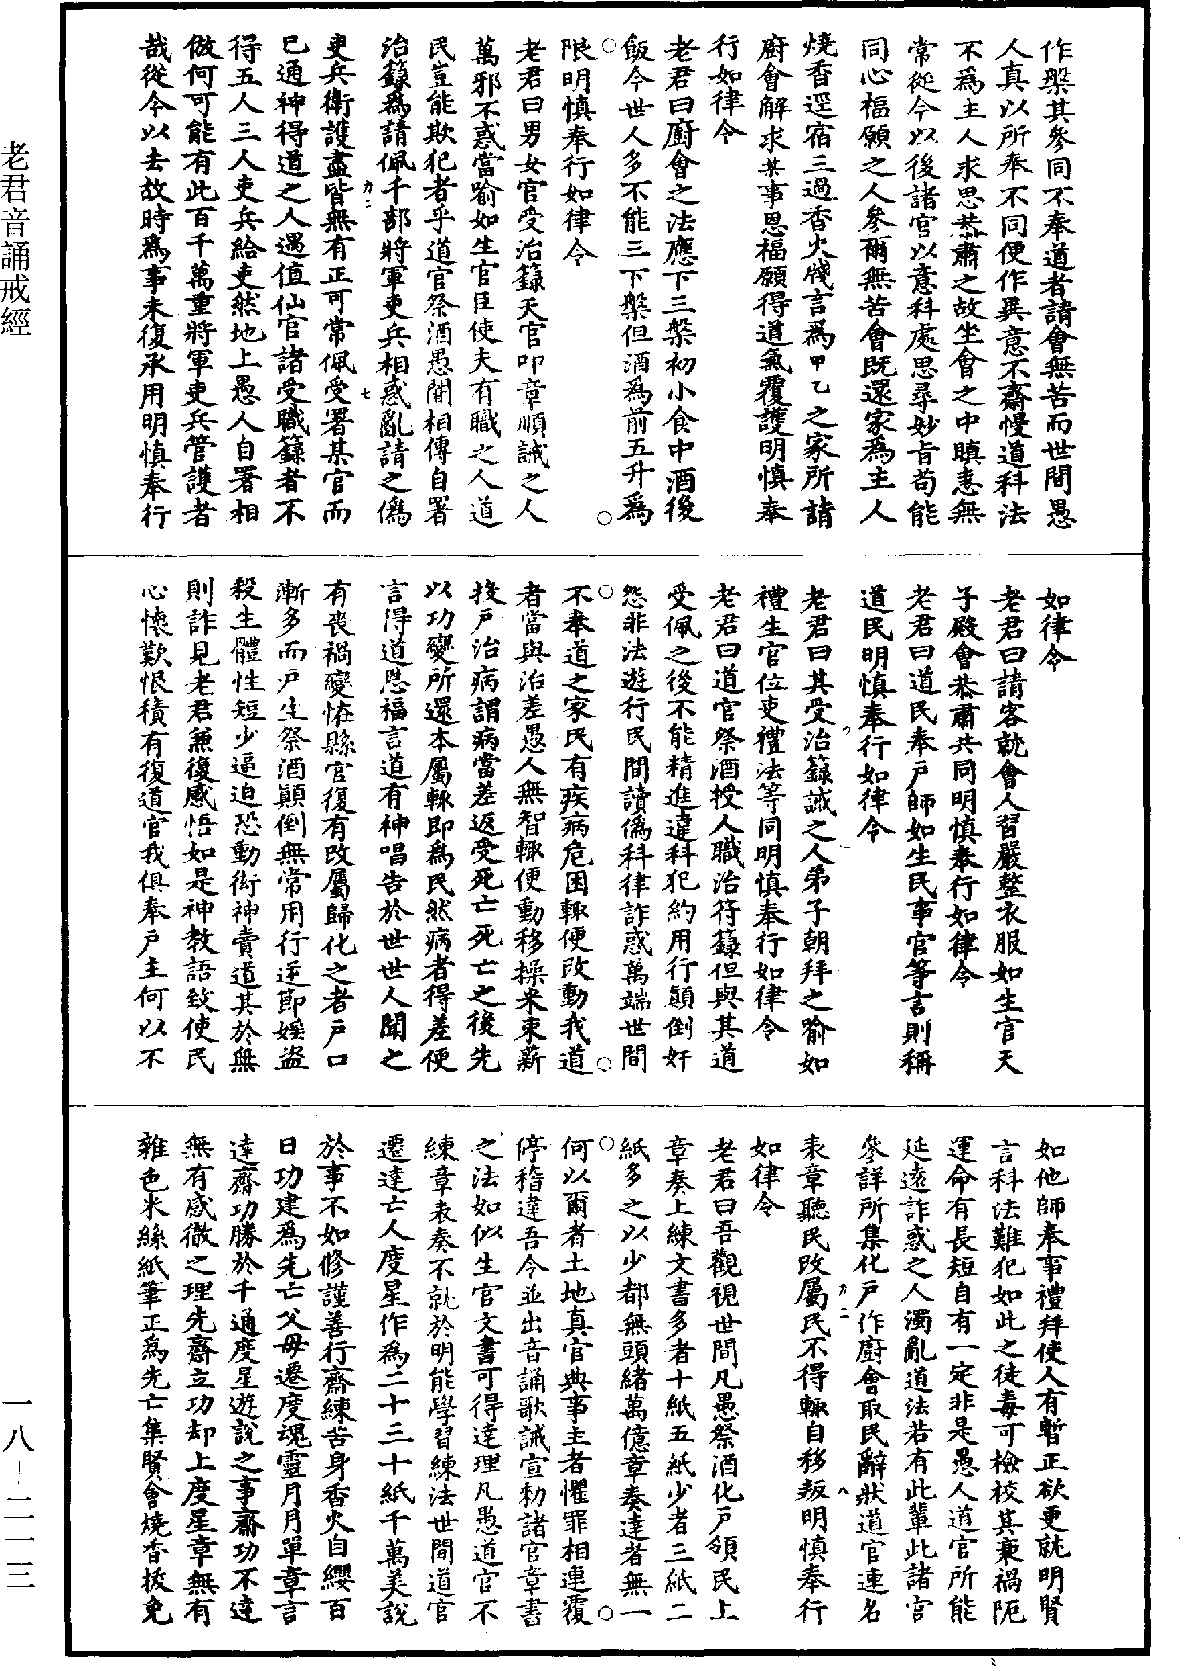 老君音誦戒經
作槃其參同不奉道者請會無苦而世間愚
人真以所奉不同便作異意不齋慢道科法
不為主人求思恭肅之故坐會之中瞋恚無
常從今以後諸官以意科處思尋妙旨苟能
同心福願之人參爾無苦會既還家為主人
燒香逕宿三過香火牋言為甲乙之家所請
廚會解求某事恩福願得道氣覆護明慎奉
行如律令
老君曰廚會之法應下三槃初小食中酒後
飯今世人多不能三下槃但酒為前五升為
限明慎奉行如律令
老君曰男女官受治籙天官叩章順誡之人
萬邪不惑當喻如生官臣使夫有職之人道
民豈能欺犯者乎道官祭酒愚闇相傳自署
治籙為請佩千部將軍吏兵相惑亂請之偽
吏兵衛護盡皆無有正可常佩受署某官而
已通神得道之人遇值仙官諸受職籙者不
得五人三人吏兵給吏然地上愚人自署相
倣何可能有此百千萬重將軍吏兵管護者
哉從今以去故時為事未復承用明慎奉行
如律令
老君曰請客就會人習嚴整衣服如生官天
子殿會恭肅共同明慎奉行如律令
老君曰道民奉戶師如生民事官等言則稱
道民明慎奉行如律令
老君曰其受治籙誡之人弟子朝拜之喻如
禮生官位吏禮法等同明慎奉行如律令
老君曰道官祭酒授人職治符籙但與其道
受佩之後不能精進違科犯約用行顛倒奸
怨非法遊行民間讀偽科律詐惑萬端世間
不奉道之家民有疾病危困輒便改動我道
者當與治差愚人無智輒便動移操米束薪
投戶治病謂病當差返受死亡死亡之後先
以功變所還本屬輒即為民然病者得差便
言得道恩福言道有神唱告於世世人聞之
有喪禍變怪縣官復有改屬歸化之者戶口
漸多而戶生祭酒顛倒無常用行逆節婬盜
殺生體性短少逼迫恐動衒神賣道其於無
則詐見老君兼復感悟如是神教語致使民
心懷歎恨積有復道官我俱奉戶主何以不
如他師奉事禮拜使人有暫正欲更就明賢
言科法難犯如此之徒毒可檢校其衰禍阨
運命有長短自有一定非是愚人道官所能
延遠詐惑之人濁亂道法若有此輩此諸官
參詳所集化戶作廚會取民辭狀道官連名
表章聽民改屬民不得輒自移叛明慎奉行
如律令
老君曰吾觀視世間凡愚祭酒化戶領民上
章奏上練文書多者十紙五紙少者三紙二
紙多之以少都無頭緒萬億章奏達者無一
何以爾者土地真官典事主者懼罪相連覆
停稽違吾今並出音誦歌誡宣勑諸官章書
之法如似生官文書可得達理凡愚道官不
練章表奏不就於明能學習練法世間道官
遷達亡人度星作為二十三十紙千萬美說
於事不如修謹善行齋練苦身香火自纓百
日功建為先亡父母遷度魂靈月月單章言
達齋功勝於千通度星遊說之事齋功不達
無有感徹之理先齋立功却上度星章無有
雜色米絲紙筆正為先亡集賢會燒香拔免
一八—二一三